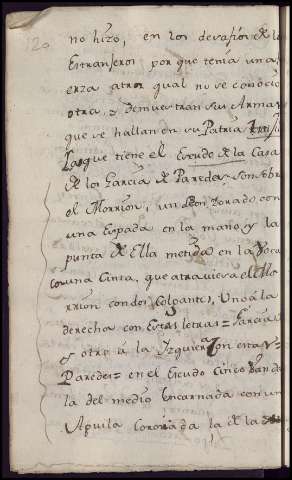 no hizo, en los desafios de los
Estranjeros, porque tenia una fu
erza atros qual no se conocio
otra, y demuestran sus Armas
que se hallan en su Patria
Las que tiene el Escudo de la Casa
de los Garcia de Paredes, son sobre
el Morrion, un Leon Dorado con
una Espada en la mano, y la
punta de Ella metida en la Boca
con una Cinta, que atraviesa el Mo
rrion con dos Colgantes, Uno à la
derecha con Estas letras = Garcia =
y otro à la Izquierda con estas
Paredes = en el Escudo Cinco Van de
la del medio Encarnada con un
Aguila Coronada la de la